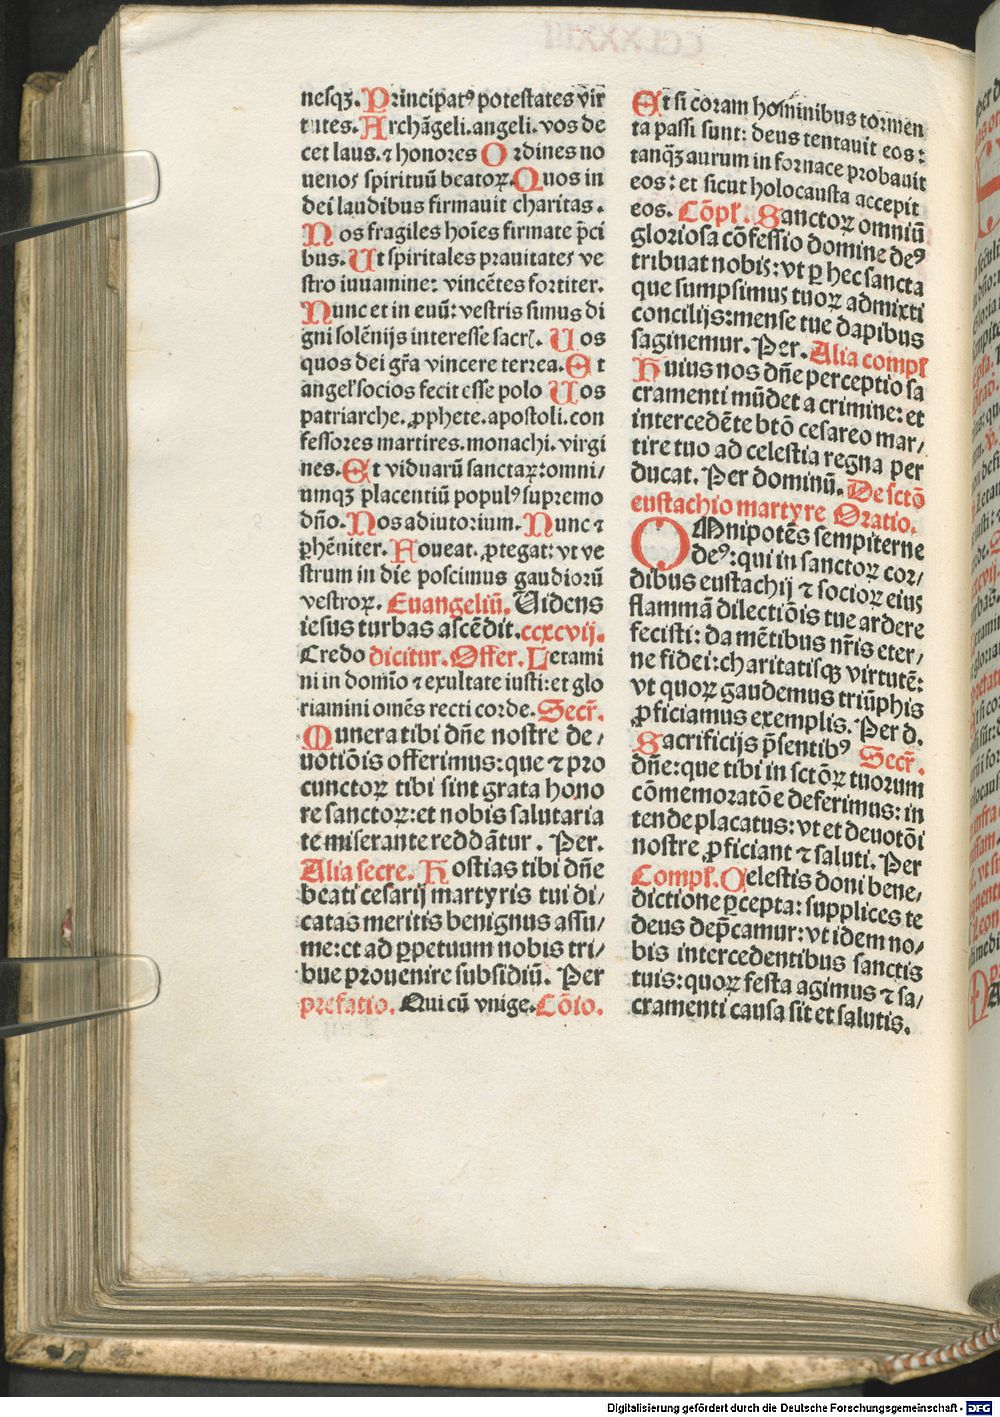 nesqꝫ. Principatꝰ potestates vir
tutes. Archāgeli. angeli. vos de
cet laus. ⁊ honores Ordines no
uenos spirituū beatoꝝ. Quos in
dei laudibus firmauit charitas.
Nos fragiles hoīes firmate p̄ci
bus. Ut spiritales prauitates ve
stro iuuamine: vincētes fortiter.
Nunc et in euū: vestris simus di
gni solēnijs interesse sacrꝭ. Uos
quos dei gr̄a vincere terrea. Et
angeł socios fecit esse polo Uos
patriarche. ꝓphete. apostoli. con
fessores martires. monachi. virgi
nes. Et viduarū sanctaꝝ: omni/
umqꝫ placentiū populꝰ supremo
dn̄o. Nos adiutorium. Nunc ⁊
ꝑhēniter. Foueat. ꝓtegat: vt ve
strum in die poscimus gaudiorū
vestroꝝ. Euangeliū. Uidens
iesus turbas ascēdit. ccxcvij.
Credo dicitur. Offer. Letami
ni in domīo ⁊ exultate iusti: et glo
riamini om̄es recti corde. Secr̄.
Munera tibi dn̄e nostre de/
uotiōis offerimus: que ⁊ pro
cunctoꝝ tibi sint grata hono
re sanctoꝝ: et nobis salutaria
te miserante reddātur. Per.
Alia secre. Hostias tibi dn̄e
beati cesarij martyris tui di/
catas meritis benignus assu/
me: et ad ꝑpetuum nobis tri/
bue prouenire subsidiū. Per
prefatio. Qui cū vnige. Cōio.
Et si coram hominibus tormen
ta passi sunt: deus tentauit eos:
tanqꝫ aurum in fornace probauit
eos: et sicut holocausta accepit
eos. Cōpł. Sanctoꝝ omniū
gloriosa cōfessio domine deꝰ
tribuat nobis: vt ꝑ hec sancta
que sumpsimus tuoꝝ admixti
concilijs: mense tue dapibus
saginemur. Per. Alia compł
Huius nos dn̄e perceptio sa
cramenti mūdet a crimine: et
intercedēte btō cesareo mar/
tire tuo ad celestia regna per
ducat. Per dominū. De sctō
eustachio martyre Oratio.
OMnipotēs sempiterne
deꝰ: qui in sanctoꝝ cor/
dibus eustachij ⁊ socioꝝ eius
flammā dilectiōis tue ardere
fecisti: da mētibus nr̄is eter/
ne fidei: charitatisqꝫ virtutē:
vt quoꝝ gaudemus triūphis
ꝓficiamus exemplis. Per d.
Sacrificijs p̄sentibꝰ Secr̄.
dn̄e: que tibi in sctōꝝ tuorum
cōmemoratōe deferimus: in
tende placatus: vt et deuotōi
nostre ꝓficiant ⁊ saluti. Per
Compł. Celestis doni bene/
dictione ꝑcepta: supplices te
deus dep̄camur: vt idem no/
bis intercedentibus sanctis
tuis: quoꝝ festa agimus ⁊ sa/
cramenti causa sit et salutis.
Digitalisierung gefördert durch die Deutsche Forschungsgemeinschaft - DFG